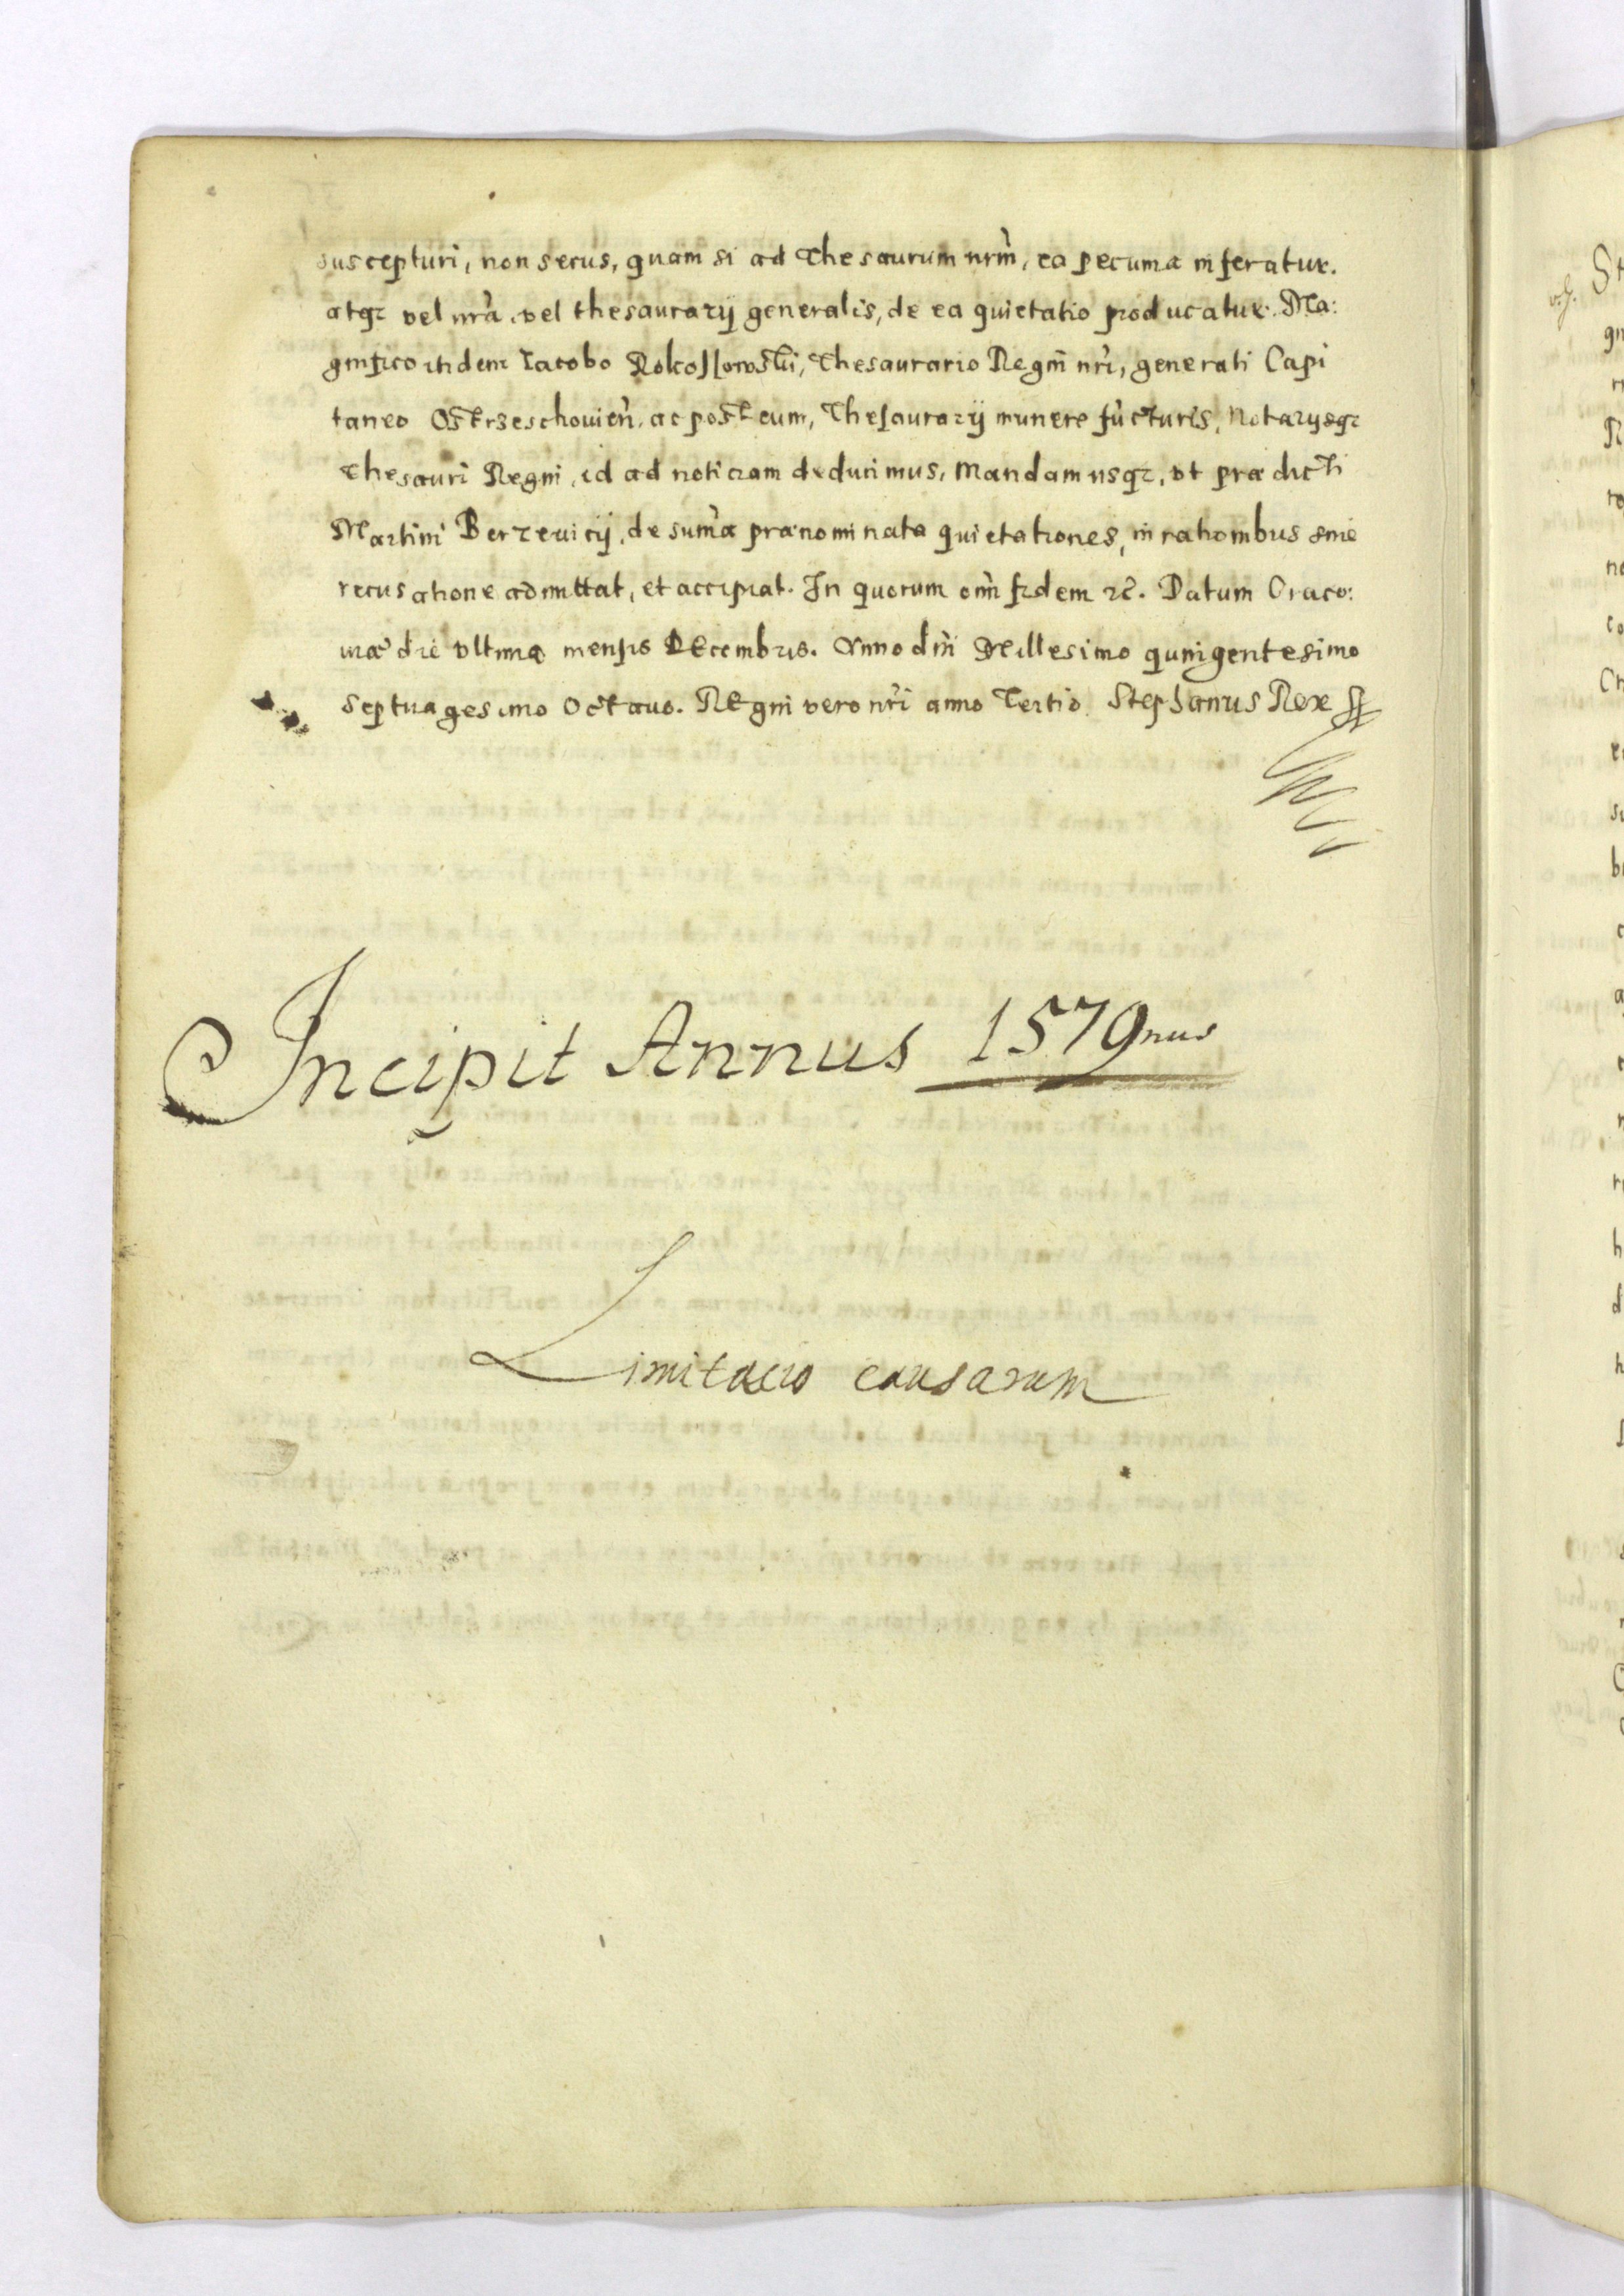 suscepturi, non secus, quam si ad Thesaurum nrm̀, ea pecunia inferatur.
atqꝫ vel nrà, vel thesaurarij generalis, de ea quietatio producatur. Ma:
gnifico itidem Iacobo Rokossowski, Thesaurario Regni nrì, generali Capi
taneo Ostrzeschouien̄, ac post eum, Thesaurarij munere fūcturis, Notarysqꝫ
Thesauri Regni, id ad noticiam deducimus, Mandamusqꝫ, vt prædicti
Martini Berzeuicij, de sum̄a prænominata quietationes, in rationibus sine
recusatione admittat, et accipiat. In quorum om̄ fidem ꝛc̄. Datum Craco:
uiæ die vltima mensis Decembris. Anno dn̄i Millesimo quingentesimo
septuagesimo Octauo. Regni vero nr̄i anno Tertio. Stephanus Rex
Incipit Annus 1579nus
Limitacio causarum